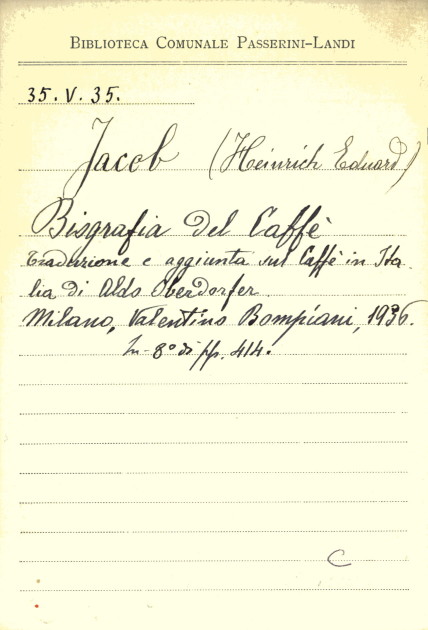 BIBLIOTECA COMUNALE PASSERINI-LANDI
35. V. 35.
Jacob (Heinrich Eduard)
Biografia del Caffè
Traduzione e aggiunta sul Caffè in Ita-
lia di Aldo Oberdorfer.
Milano, Valentino Bompiani, 1936.
In-8° di pp. 414.
C